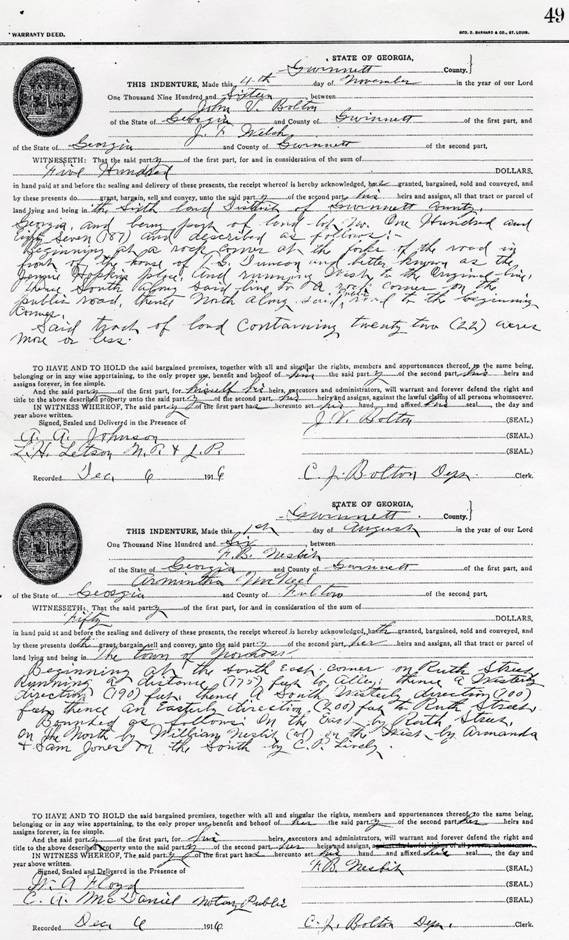 49
WARRANTY DEED.
GEO. D. BARNARD & CO., ST. LOUIS.
STATE OF GEORGIA,
Gwinnett County.
THIS INDENTURE, Made this 4th day of November in the year of our Lord
One Thousand Nine Hundred and Sixteen, between
John V. Bolton
of the State of Georgia and County of Gwinnett of the first part, and
J. F. Welch
of the State of Georgia and County of Gwinnett of the second part,
WITNESSETH: That the said party of the first part, for and in consideration of the sum of
Five Hundred DOLLARS,
in hand paid at and before the sealing and delivery of these presents, the receipt whereof is hereby acknowledged, has granted, bargained, sold and conveyed, and
by these presents do grant, bargain, sell and convey, unto the said party of the second part, his heirs and assigns, all that tract or parcel of
land lying and being in the Sixth land District of Gwinnett County,
Georgia, and being part of land lot No. One Hundred and
Seven (187) and described as follows:-
Beginning at a rock corner at the forks of the road in
front of the house of Duncan and better known as the
Jennie Hopkins place. And running West to the Original line,
thence South along said line to a rock corner on the
public road, thence North along said public road to the beginning
corner.
Said tract of land containing twenty two (22) acres
more or less.
TO HAVE AND TO HOLD the said bargained premises, together with all and singular the rights, members and appurtenances thereof, to the same being,
belonging or in any wise appertaining, to the only proper use, benefit and behoof of him the said party of the second part, his heirs and
assigns forever, in fee simple.
And the said party of the first part, for himself his heirs, executors and administrators, will warrant and forever defend the right and
title to the above described property unto the said party of the second part, his heirs and assigns, against the lawful claims of all persons whomsoever.
IN WITNESS WHEREOF, The said party of the first part has hereunto set his hand, and affixed his seal, the day and
year above written.
Signed, Sealed and Delivered in the Presence of J. V. Bolton (SEAL.)
A. A. Johnson (SEAL.)
L. H. Letson N. P. & J. P. (SEAL.)
Recorded Dec 6 1916 C. J. Bolton Dep. Clerk.
STATE OF GEORGIA,
Gwinnett COUNTY.
THIS INDENTURE, Made this 1st day of August in the year of our Lord
One Thousand Nine Hundred and Six, between
F. B. Nesbit
of the State of Georgia and County of Gwinnett of the first part, and
Armintha McNeel
of the State of Georgia and County of Fulton of the second part,
WITNESSETH: That the said party of the first part, for and in consideration of the sum of
Fifty DOLLARS,
in hand paid at and before the sealing and delivery of these presents, the receipt whereof is hereby acknowledged, hath granted, bargained, sold and conveyed, and
by these presents doth grant, bargain, sell and convey, unto the said party of the second part, her heirs and assigns, all that tract or parcel of
land lying and being in The town of Norcross
Beginning at the South East corner on Ruth Street
Running a distance (175) feet to Alley; thence a Westerly
direction (190) feet, thence A South Westerly direction (100)
feet, thence an Easterly direction (200) feet to Ruth Street.
Bounded as follows: On the East by Ruth Street,
on the North by William Nesbit (col) on the West by Armanda
& Sam Jones on the South by C. P. Lively.
TO HAVE AND TO HOLD the said bargained premises, together with all and singular the rights, members and appurtenances thereof, to the same being,
belonging or in any wise appertaining, to the only proper use, benefit and behoof of her the said party of the second part, her heirs and
assigns forever, in fee simple.
And the said party of the first part, for his heirs, executors and administrators, will warrant and forever defend the right and
title to the above described property unto the said party of the second part, her heirs and assigns, against the lawful claims of all persons whomsoever.
IN WITNESS WHEREOF, The said party of the first part has hereunto set his hand and affixed his seal, the day and
year above written.
Signed, Sealed and Delivered in Presence of F. B. Nesbit (SEAL.)
W. A. Floyd (SEAL.)
C. A. McDaniel Notary Public (SEAL.)
Recorded Dec 6 1916 C. J. Bolton Dep. Clerk.